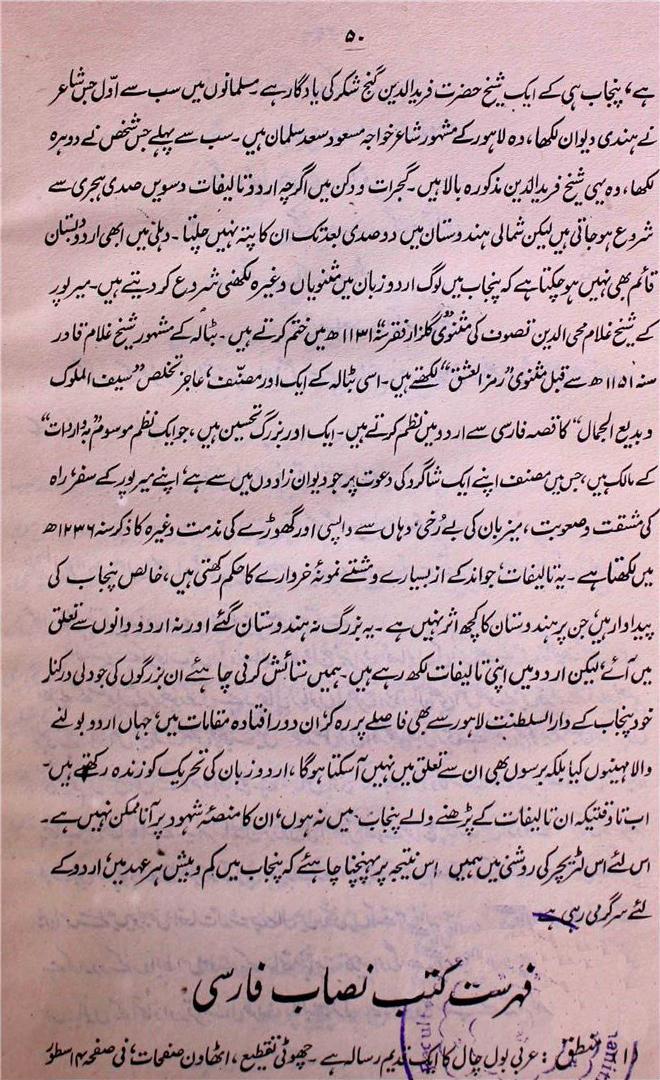 ۵۰
ہے، پنجاب ہی کے ایک شیخ حضرت فرید الدین گنج شکر کی یادگار ہے۔ مسلمانوں میں سب سے اوّل جس شاعر
نے ہندی دیوان لکھا، وہ لاہور کے مشہور شاعر خواجہ مسعود سعد سلمان ہیں۔ سب سے پہلے جس شخص نے دوہرہ
لکھا، وہ یہی شیخ فرید الدین مذکورہ بالا ہیں۔ گجرات و دکن میں اگرچہ اردو تالیفات دسویں صدی ہجری سے
شروع ہو جاتی ہیں لیکن شمالی ہندوستان میں دو صدی بعد تک ان کا پتہ نہیں چلتا۔ دہلی میں ابھی اردو دبستان
قائم بھی نہیں ہو چکتا ہے کہ پنجاب میں لوگ اردو زبان میں مثنویاں وغیرہ لکھنی شروع کر دیتے ہیں۔ میرپور
کے شیخ غلام محی الدین تصوف کی مثنوی "گلزار فقر" سنہ ۱۱۳۱ھ میں ختم کرتے ہیں۔ بٹالہ کے مشہور شیخ غلام قادر
سنہ ۱۱۵۱ھ سے قبل مثنوی "رمز العشق" لکھتے ہیں۔ اسی بٹالہ کے ایک اور مصنّف، عاجز تخلص "سیف الملوک
و بدیع الجمال" کا قصہ فارسی سے اردو میں نظم کرتے ہیں۔ ایک اور بزرگ تحسین ہیں، جو ایک نظم موسوم بہ "واردات"
کے مالک ہیں، جس میں مصنف اپنے ایک شاگرد کی دعوت پر جو دیوان زادوں میں سے ہے، اپنے میرپور کے سفر، راہ
کی مشقت و صعوبت، میزبان کی بے رُخی، وہاں سے واپسی اور گھوڑے کی مذمت وغیرہ کا ذکر سنہ ۱۲۳۶ھ
میں لکھتا ہے۔ یہ تالیفات، جو اندکے از بسیارے و مشتے نمونۂ خروارے کا حکم رکھتی ہیں، خالص پنجاب کی
پیداوار ہیں، جن پر ہندوستان کا کچھ اثر نہیں ہے۔ یہ بزرگ نہ ہندوستان گئے اور نہ اردو دانوں سے تعلق
میں آئے، لیکن اردو میں اپنی تالیفات لکھ رہے ہیں۔ ہمیں ستائش کرنی چاہئے ان بزرگوں کی جو دلی درکنار
خود پنجاب کے دار السلطنت لاہور سے بھی فاصلے پر رہ کر، ان دور افتادہ مقامات میں، جہاں اردو بولنے
والا مہینوں کیا بلکہ برسوں بھی ان سے تعلق میں نہیں آ سکتا ہوگا، اردو زبان کی تحریک کو زندہ رکھتے ہیں۔
اب تا وقتیکہ ان تالیفات کے پڑھنے والے پنجاب میں نہ ہوں، ان کا منصۂ شہود پر آنا ممکن نہیں ہے۔
اس لئے اس لٹریچر کی روشنی میں ہمیں اس نتیجہ پر پہنچنا چاہئے کہ پنجاب میں کم و بیش ہر عہد میں، اردو کے
لئے سرگرمی رہی ہے
فہرست کتب نصاب فارسی
۱۔ منطق : عربی بول چال کا ایک قدیم رسالہ ہے۔ چھوٹی تقطیع، اٹھاون صفحات، فی صفحہ ۱۴ سطور